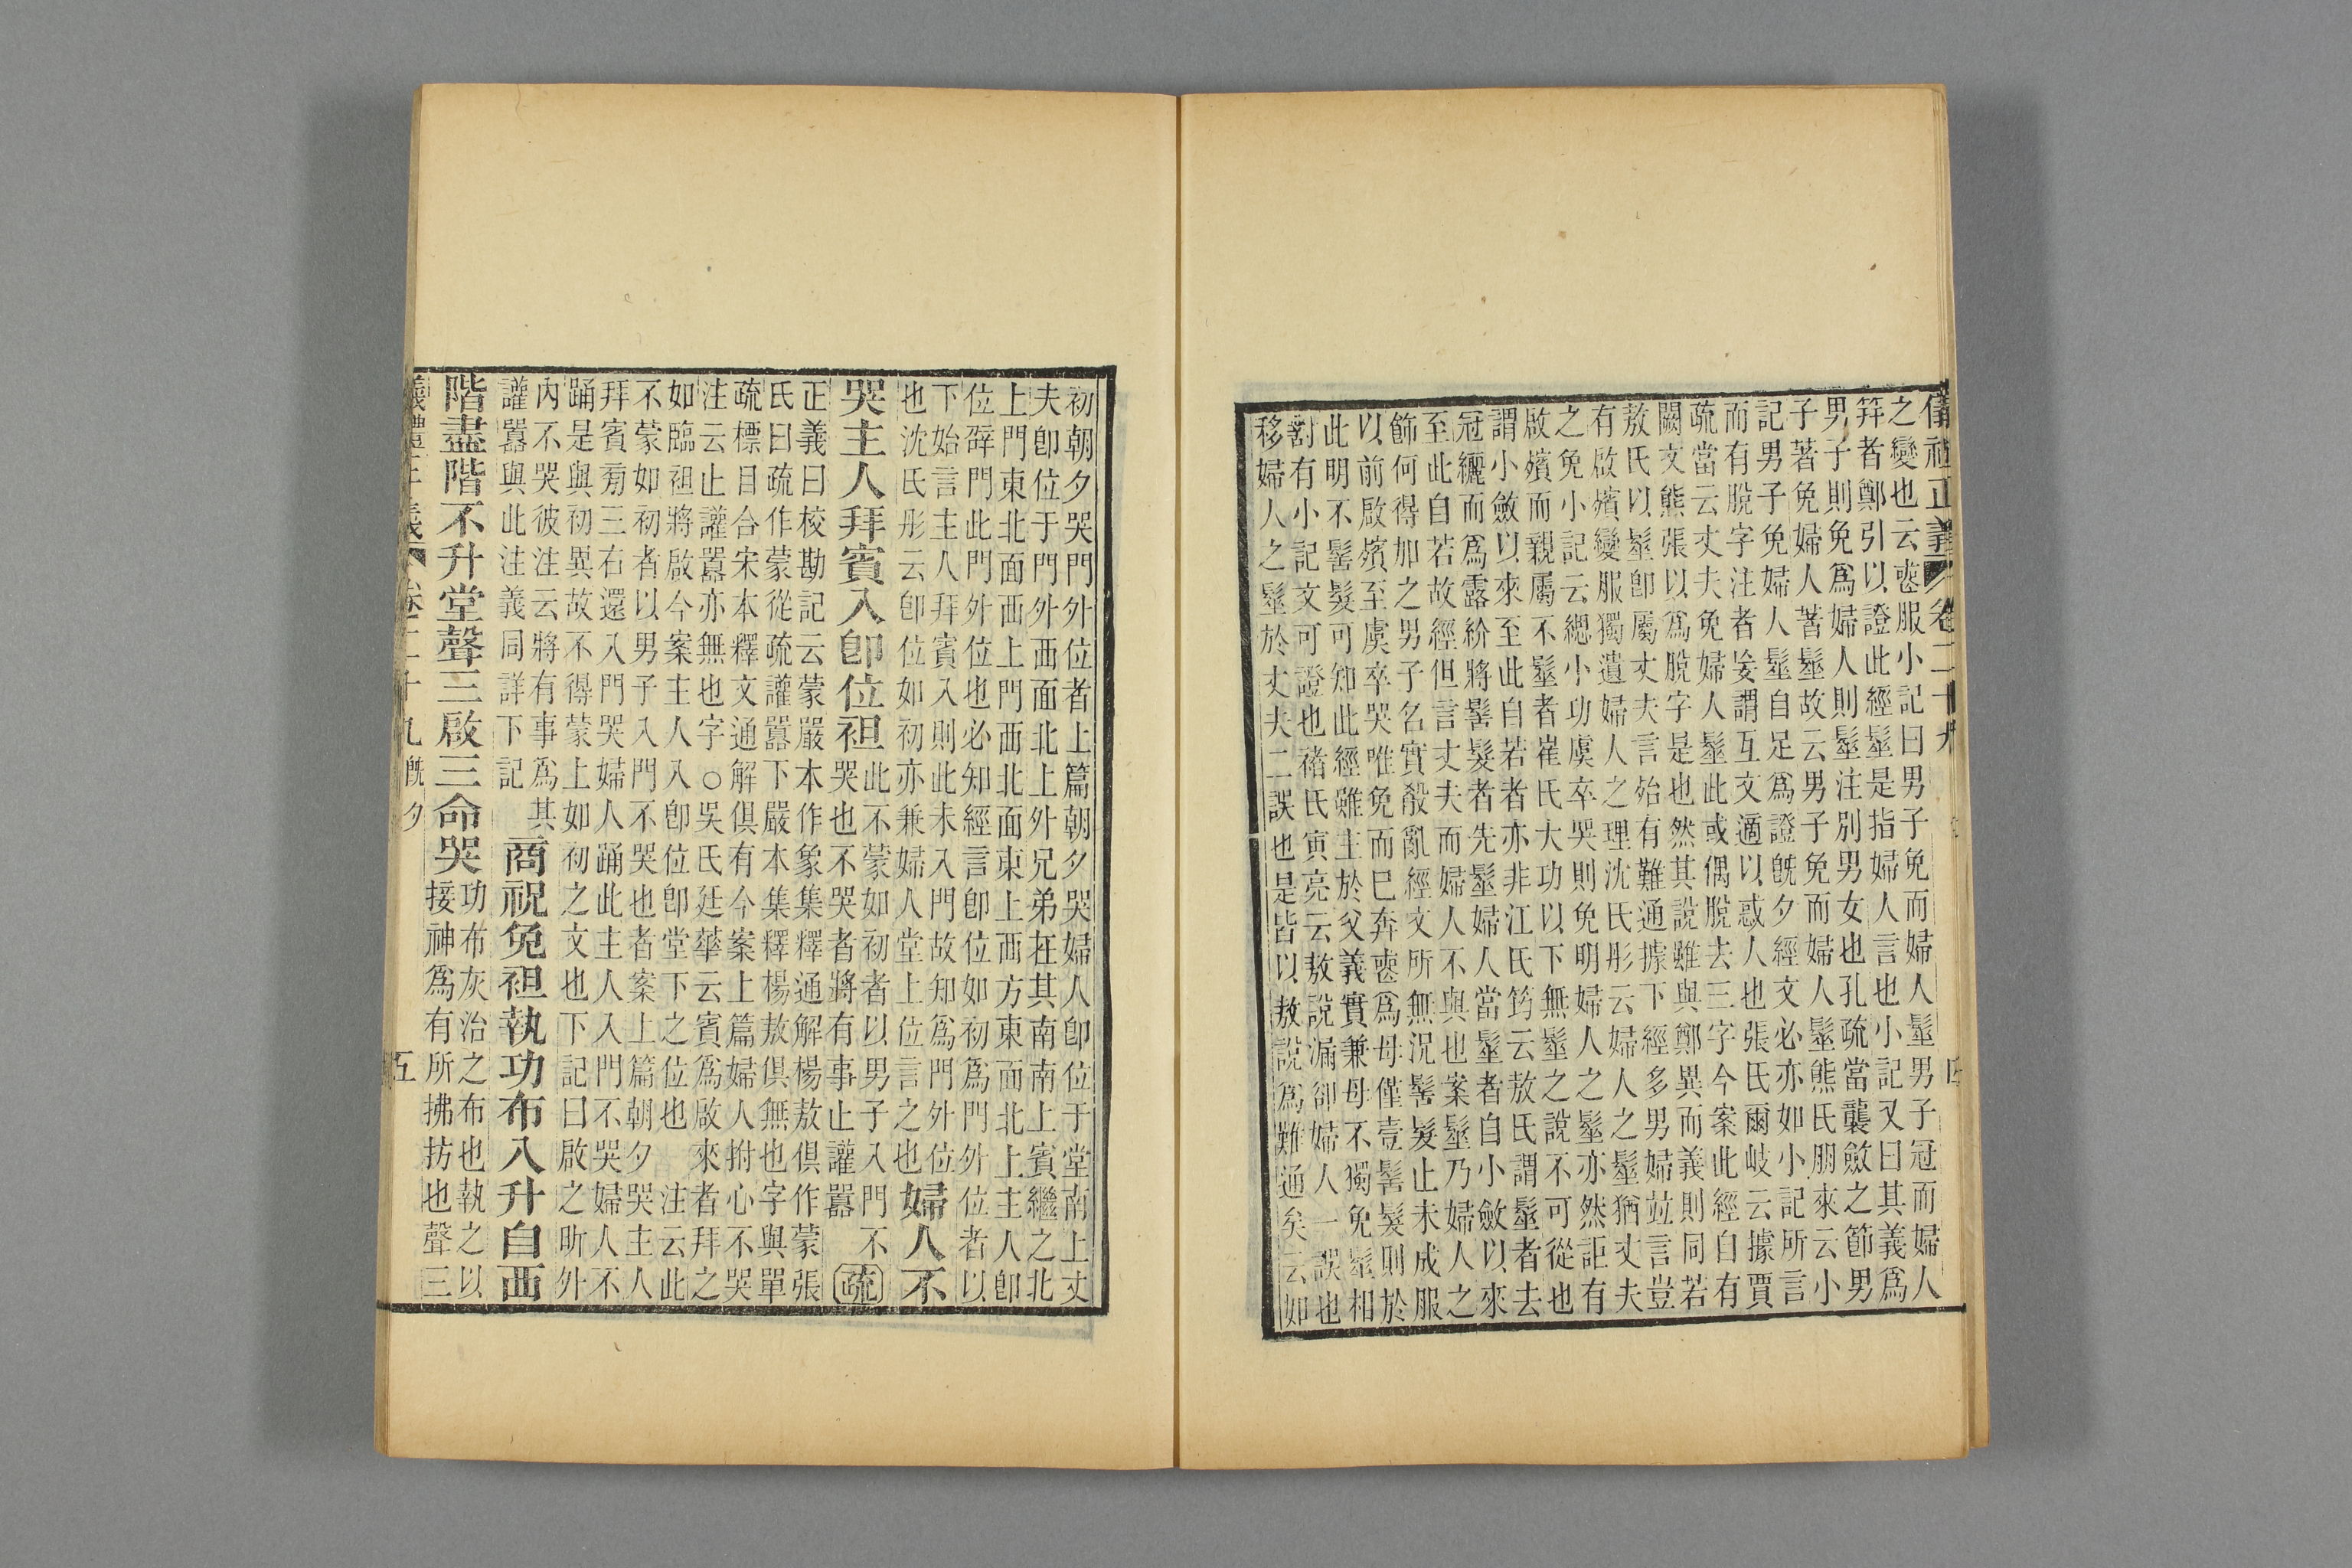 儀禮正義 卷二十九 四
之變也云䘮服小記曰男子免而婦人髽男子冠而婦人
笄者鄭引以證此經髽是指婦人言也小記又曰其義爲
男子則免爲婦人則髽注別男女也孔疏當襲斂之節男
子著免婦人著髽故云男子免而婦人髽熊氏朋來云小
記男子免婦人髽自足爲證旣夕經文必亦如小記所言
而有脫字注者妄謂互文適以惑人也張氏爾岐云據賈
疏當云丈夫免婦人髽此或偶脫去三字今案此經自有
闕文熊張以爲脫字是也然其說雖與鄭異而義則同若
敖氏以髽卽屬丈夫言殆有難通據下經多男婦竝言豈
有啟殯變服獨遺婦人之理沈氏彤云婦人之髽猶丈夫
之免小記云緦小功虞卒哭則免明婦人之髽亦然詎有
啟殯而親屬不髽者崔氏大功以下無髽之說不可從也
謂小斂以來至此自若者亦非江氏筠云敖氏謂髽者去
冠纚而爲露紒將髺髮者先髽婦人當髽者自小斂以來
至此自若故經但言丈夫而婦人不與也案髽乃婦人之
飾何得加之男子名實殽亂經文所無況髺髮止未成服
以前啟殯至虞卒哭唯免而已奔䘮爲母僅壹髺髮則於
此明不髺髮可知此經雖主於父義實兼母不獨免髽相
對有小記文可證也褚氏寅亮云敖說漏卻婦人一誤也
移婦人之髽於丈夫二誤也是皆以敖說爲難通矣云如
初朝夕哭門外位者上篇朝夕哭婦人卽位于堂南上丈
夫卽位于門外西面北上外兄弟在其南南上賓繼之北
上門東北面西上門西北面東上西方東面北上主人卽
位辟門此門外位也必知經言卽位如初爲門外位者以
下始言主人拜賓入則此未入門故知爲門外位
也沈氏彤云卽位如初亦兼婦人堂上位言之也 婦人不
哭主人拜賓入卽位袒 此不蒙如初者以男子入門不
哭也不哭者將有事止讙囂 疏
正義曰校勘記云蒙嚴本作象集釋通解楊敖俱作蒙張
氏曰疏作蒙從疏讙囂下嚴本集釋楊敖俱無也字與單
疏標目合宋本釋文通解俱有今案上篇婦人拊心不哭
注云止讙囂亦無也字○吳氏廷華云賓爲啟來者拜之
如臨袒將啟今案主人入卽位卽堂下之位也 注云此
不蒙如初者以男子入門不哭也者案上篇朝夕哭主人
拜賓旁三右還入門哭婦人踊此主人入門不哭婦人不
踊是與初異故不得蒙上如初之文也下記曰啟之昕外
內不哭彼注云將有事爲其
讙囂與此注義同詳下記 商祝免袒執功布入升自西
階盡階不升堂聲三啟三命哭 功布灰治之布也執之以
接神爲有所拂拭也聲三
儀禮正義 卷二十九旣夕 五